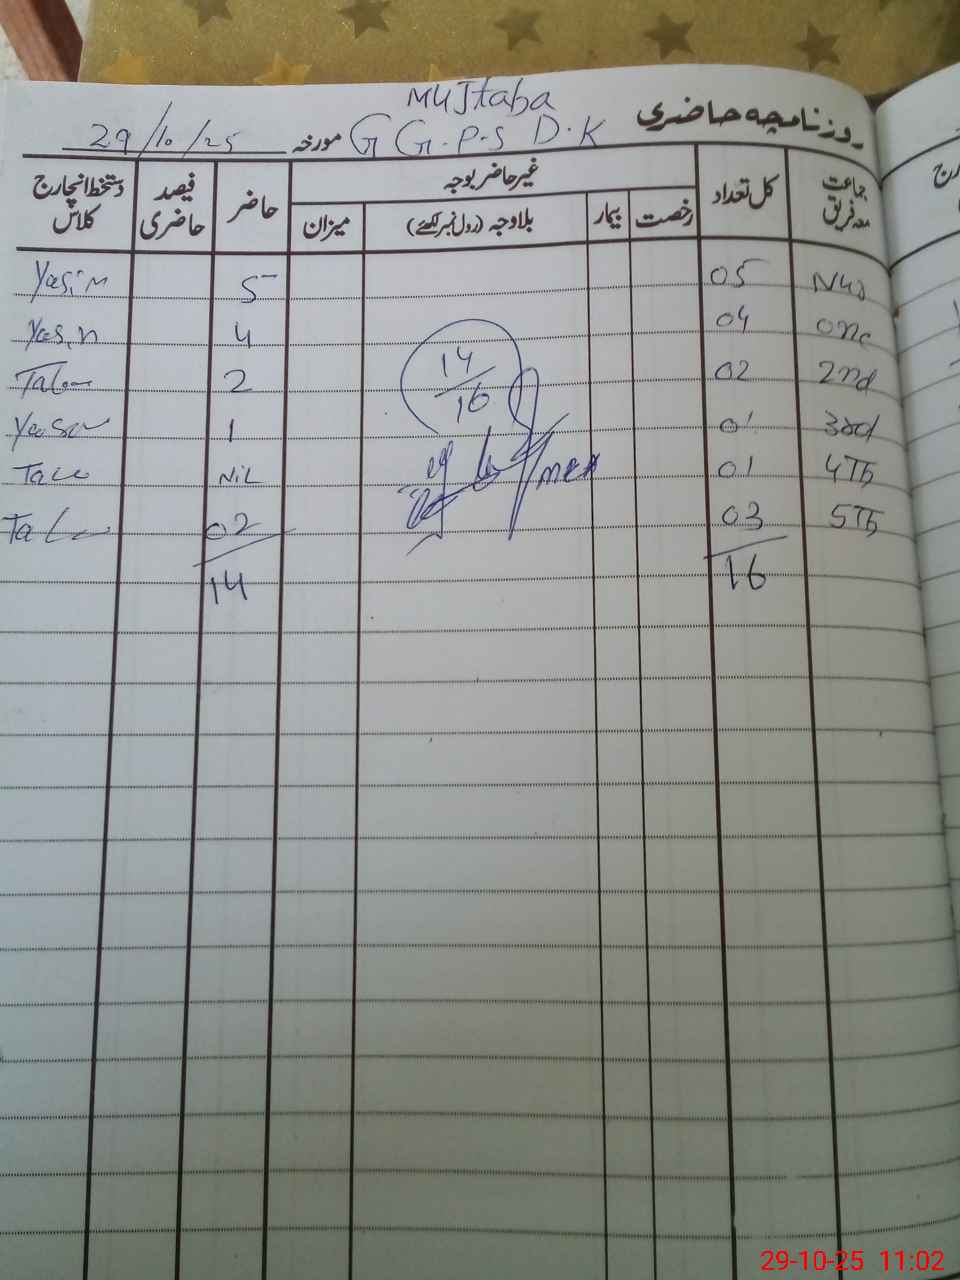 Mujtaba
روزنامچہ حاضری
G G.P.S D.K مورخہ 29/10/25
جماعت معہ فریق کل تعداد غیر حاضر بوجہ حاضر فیصد حاضری دستخط انچارج کلاس
رخصت بیمار بلاوجہ (رول نمبر لکھئے) میزان
Nur 05 5 Yasin
one 04 4 Yasin
2nd 02 2
3rd 01 1
4Th 01 Nil
5Th 03 02
16 14
14/16
29-10-25 11:02